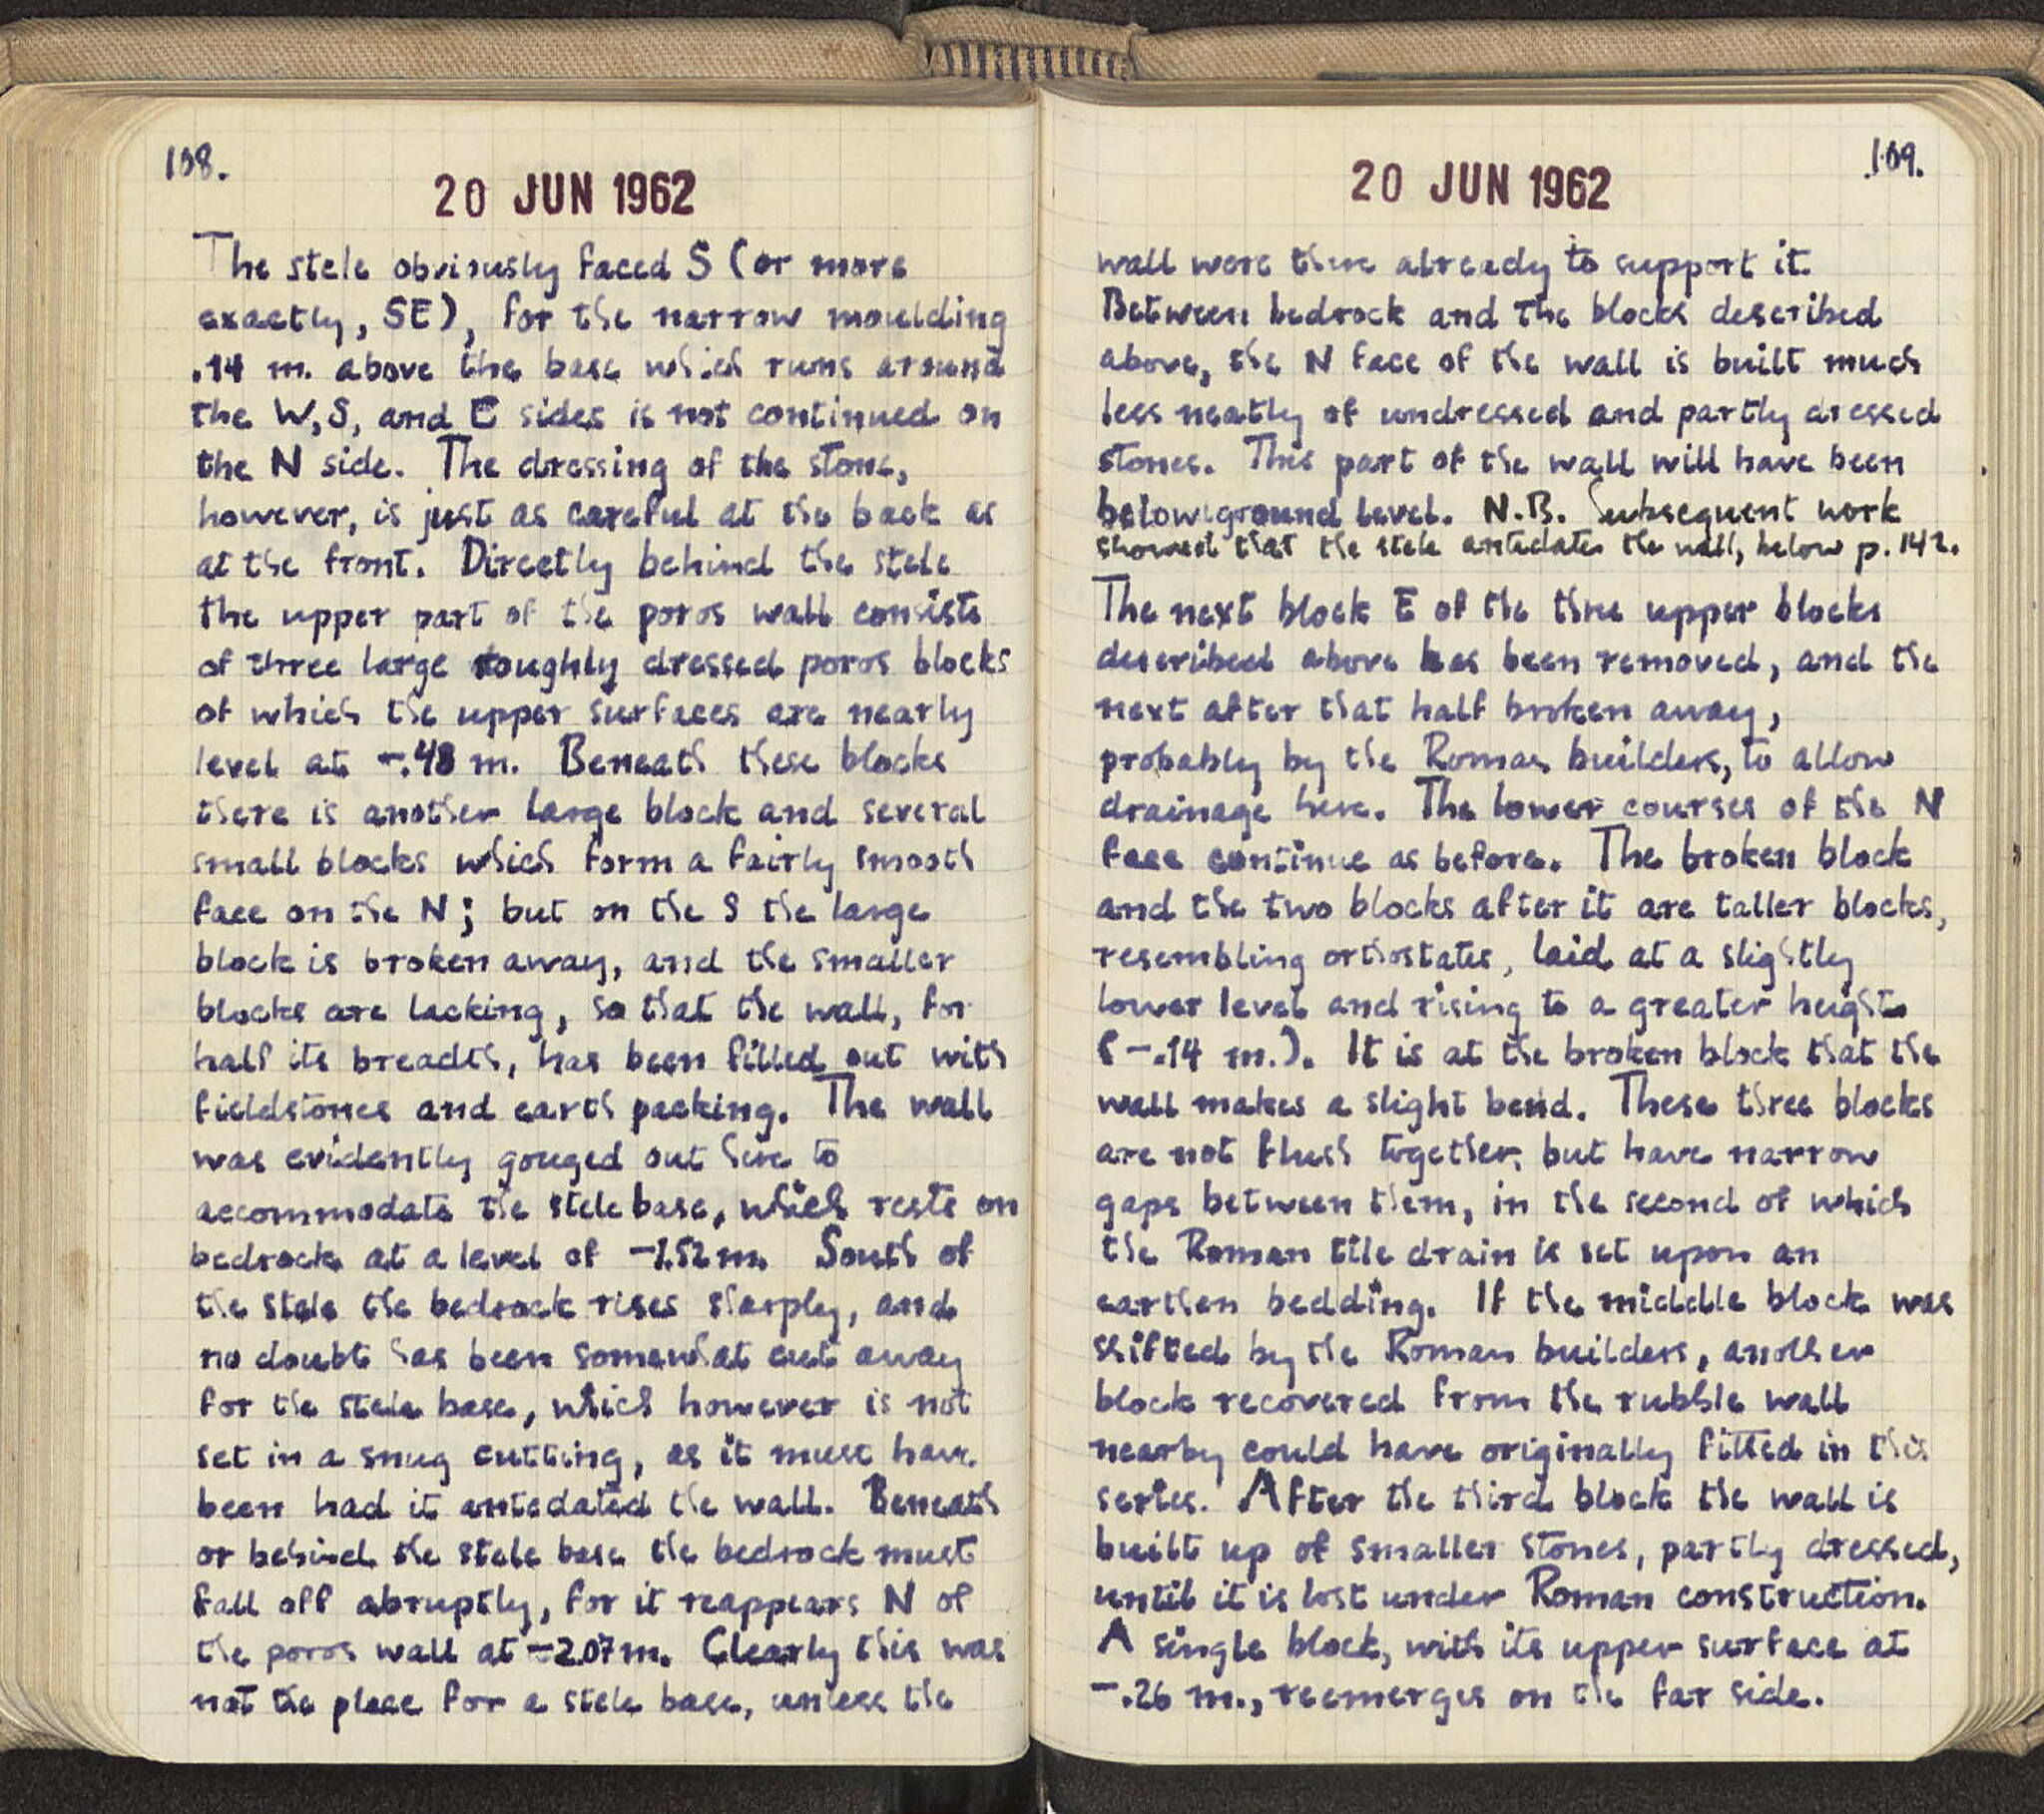 108.
20 JUN 1962
The stele obviously faced S (or more
exactly, SE), for the narrow moulding
.14 m. above the base which runs around
the W, S, and E sides is not continued on
the N side. The dressing of the stone,
however, is just as careful at the back as
at the front. Directly behind the stele
the upper part of the poros wall consists
of three large roughly dressed poros blocks
of which the upper surfaces are nearly
level at -.48 m. Beneath these blocks
there is another large block and several
small blocks which form a fairly smooth
face on the N; but on the S the large
block is broken away, and the smaller
blocks are lacking, so that the wall, for
half its breadth, has been filled out with
fieldstones and earth packing. The wall
was evidently gouged out here to
accommodate the stele base, which rests on
bedrock at a level of -1.52 m. South of
the stele the bedrock rises sharply, and
no doubt has been somewhat cut away
for the stele base, which however is not
set in a snug cutting, as it must have
been had it antedated the wall. Beneath
or behind the stele base the bedrock must
fall off abruptly, for it reappears N of
the poros wall at -2.07 m. Clearly this was
not the place for a stele base, unless the
109.
20 JUN 1962
wall were there already to support it.
Between bedrock and the blocks described
above, the N face of the wall is built much
less neatly of undressed and partly dressed
stones. This part of the wall will have been
below ground level. N.B. Subsequent work
showed that the stele antedates the wall, below p. 142.
The next block E of the three upper blocks
described above has been removed, and the
next after that half broken away,
probably by the Roman builders, to allow
drainage here. The lower courses of the N
face continue as before. The broken block
and the two blocks after it are taller blocks,
resembling orthostates, laid at a slightly
lower level and rising to a greater height
(-.14 m.). It is at the broken block that the
wall makes a slight bend. These three blocks
are not flush together, but have narrow
gaps between them, in the second of which
the Roman tile drain is set upon an
earthen bedding. If the middle block was
shifted by the Roman builders, another
block recovered from the rubble wall
nearby could have originally fitted in this
series. After the third block the wall is
built up of smaller stones, partly dressed,
until it is lost under Roman construction.
A single block, with its upper surface at
-.26 m., reemerges on the far side.